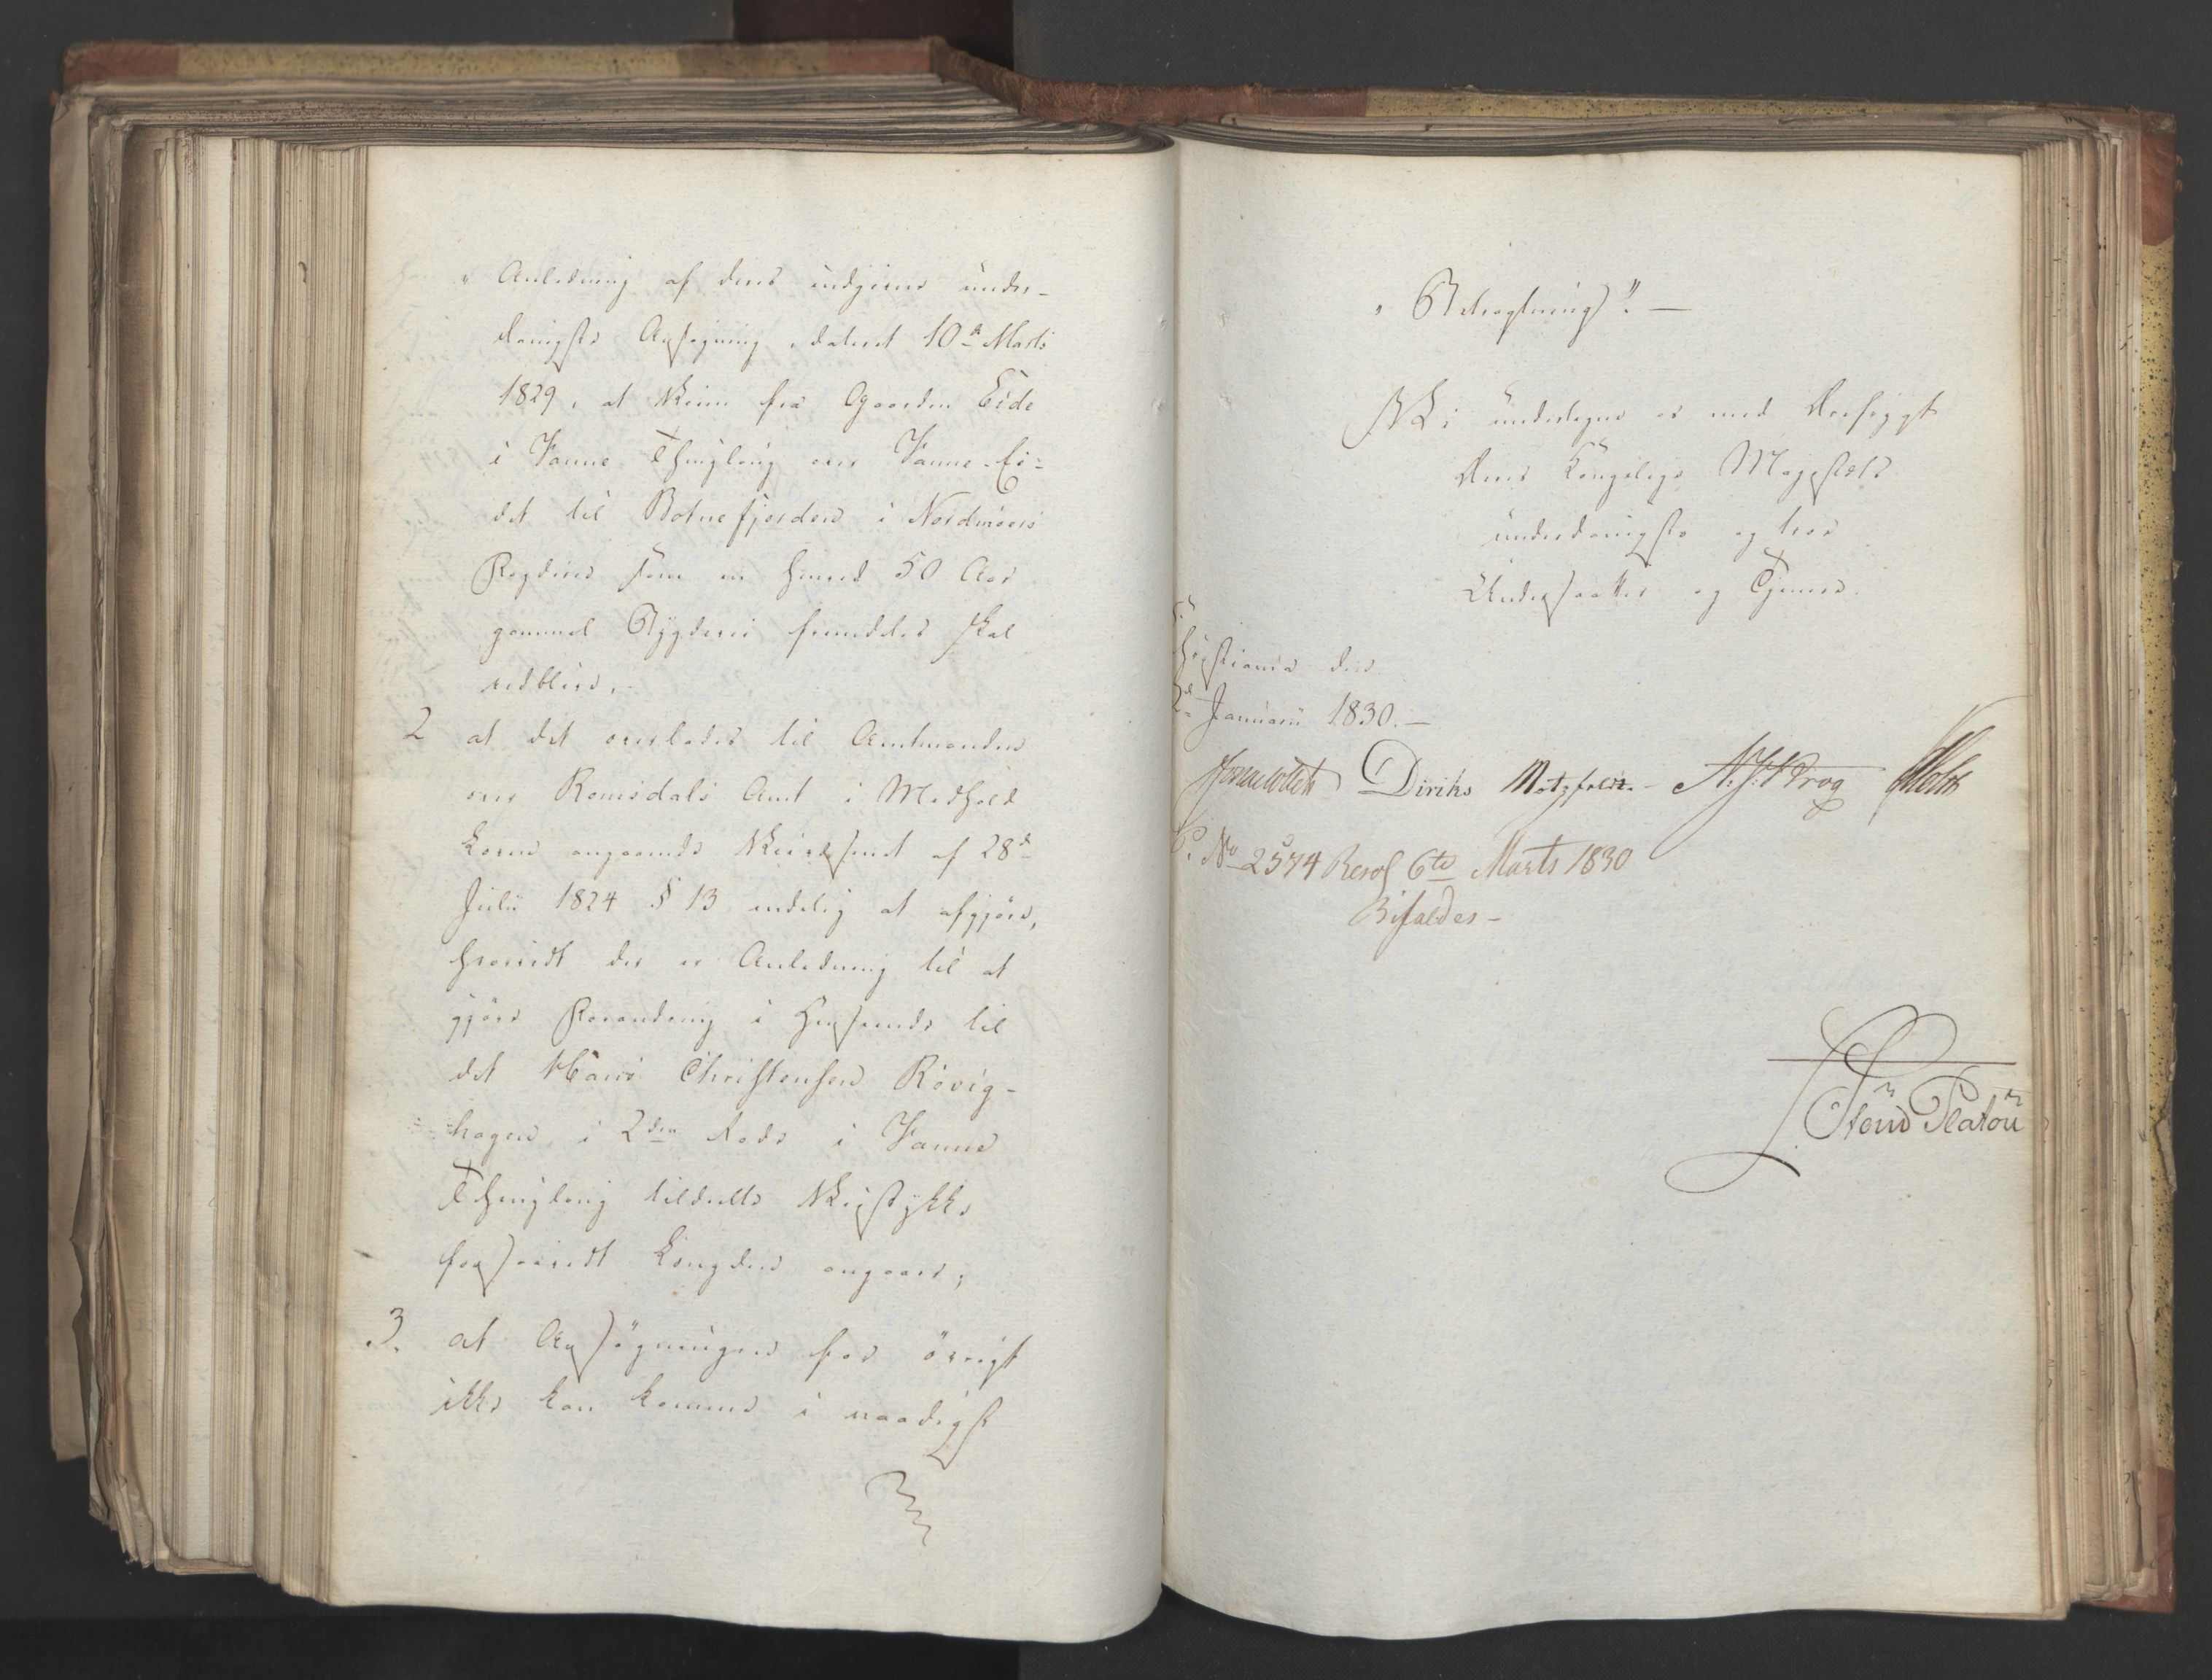 „ Anledning af deres indgivne under-
danigste Ansøgning, dateret 10d Marts
1829, at Veien fra Gaarden Eide
i Vanne Thinglaug over Vanne-Ei-
det til Botnefjorden i Nordmøers
Fogderie som en henved 50 Aar
gammel Bygdevei fremdeles skal
vedblive.-
2 at det overlades til Amtmanden
over Romsdals Amt i Medhold
Loven angaaende Veivæsenet af 28d
Julii 1824 § 13 endelig at afgjøre,
hvorvidt der er Anledning til at
gjøre Forandring i Henseende til
det Hans Christensen Røvig-
hagen i 2den Rode i Vanne
Thinglaug tildeelte Veistykke
forsaavidt Længden angaaer;
3. at Ansøgningen for øvrigt
ikke kan komme i naadigst
„ Betragtning". —
Vi undertegne os med Dyb
Deres Kongelige Majestæts
underdanigste og troe
Undersaatter og Tjenere.
Christiania den
2d Januarii 1830.—
Diriks Motzfeldt. Krog Holst
P. No 2574 Resol 6te Marts 1830
Bifaldes-
Steud Platou